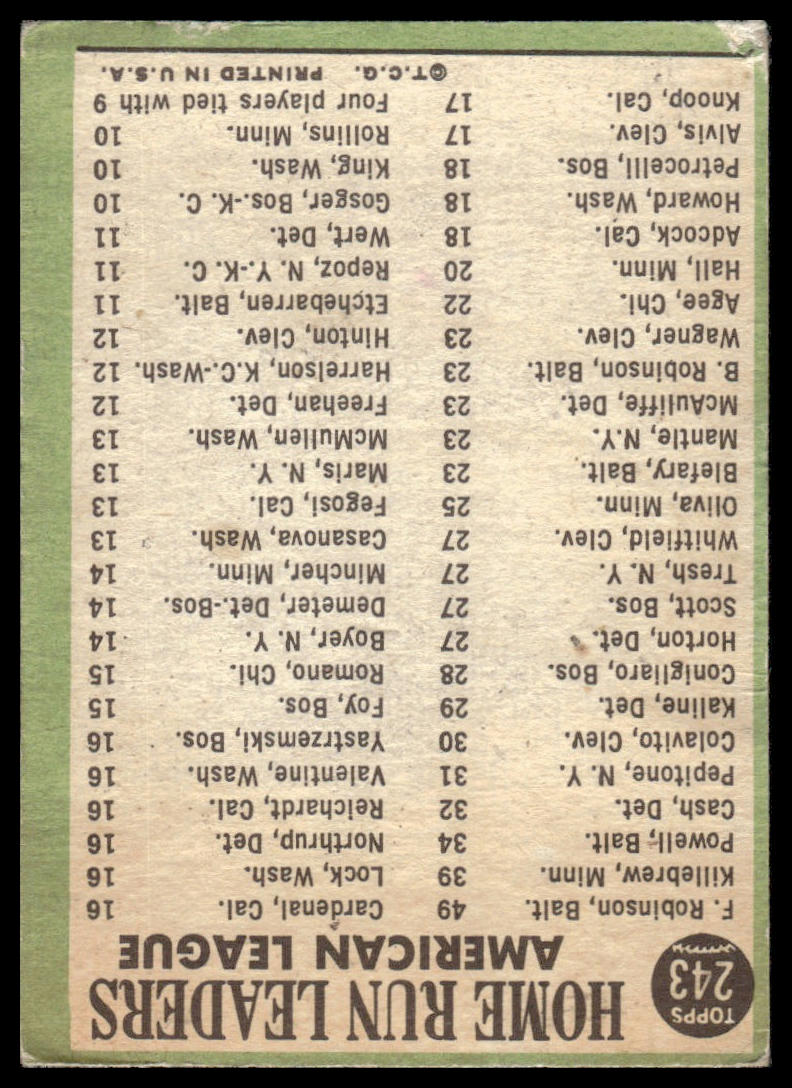 TOPPS
243
HOME RUN LEADERS
AMERICAN LEAGUE
F. Robinson, Balt. 49
Killebrew, Minn. 39
Powell, Balt. 34
Cash, Det. 32
Pepitone, N. Y. 31
Colavito, Clev. 30
Kaline, Det. 29
Conigliaro, Bos. 28
Horton, Det. 27
Scott, Bos. 27
Tresh, N. Y. 27
Whitfield, Clev. 27
Oliva, Minn. 25
Blefary, Balt. 23
Mantle, N.Y. 23
McAuliffe, Det. 23
B. Robinson, Balt. 23
Wagner, Clev. 23
Agee, Chi. 22
Hall, Minn. 20
Adcock, Cal. 18
Howard, Wash. 18
Petrocelli, Bos. 18
Alvis, Clev. 17
Knoop, Cal. 17
Cardenal, Cal. 16
Lock, Wash. 16
Northrup, Det. 16
Reichardt, Cal. 16
Valentine, Wash. 16
Yastrzemski, Bos. 16
Foy, Bos. 15
Romano, Chi. 15
Boyer, N. Y. 14
Demeter, Det.-Bos. 14
Mincher, Minn. 14
Casanova, Wash. 13
Fegosi, Cal. 13
Maris, N. Y. 13
McMullen, Wash. 13
Freehan, Det. 12
Harrelson, K.C.-Wash. 12
Hinton, Clev. 12
Etchebarren, Balt. 11
Repoz, N. Y.-K. C. 11
Wert, Det. 11
Gosger, Bos.-K. C. 10
King, Wash. 10
Rollins, Minn. 10
Four players tied with 9
©T.C.G. PRINTED IN U.S.A.